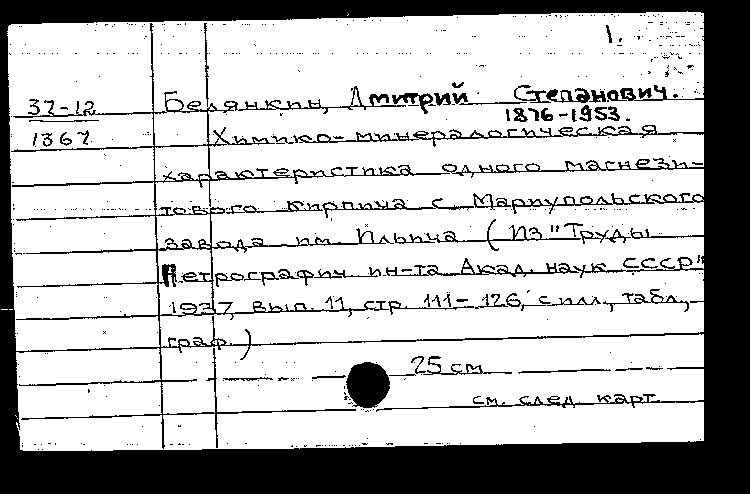 1.
37-12
1367
Белянкин, Дмитрий Степанович.
1876-1953.
Химико-минералогическая
характеристика одного магнези-
тового кирпича с Мариупольского
завода им. Ильича (Из "Труды
Петрографич. ин-та Акад. наук СССР"
1937, вып. 11, стр. 111-126, с илл., табл.,
граф.)
25 см
см. след. карт.